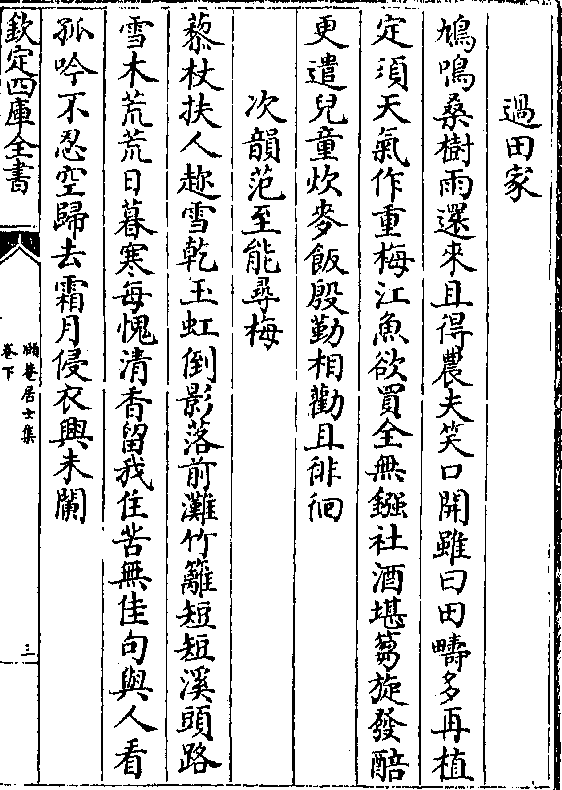 過田家
鳩鳴桑樹雨還來且得農夫笑口開雖曰田疇多再植
定須天氣作重梅江魚欲買全無鏹社酒堪篘旋發醅
更遣兒童炊麥飯殷勤相勸且徘徊
次韻范至能尋梅
藜杖扶人趂雪乾玉虹倒影落前灘竹籬短短溪頭路
雪木荒荒日暮寒每愧清香留我住苦無佳句與人看
孤吟不忍空歸去霜月侵衣興未闌
欽定四庫全書
嬾菴居士集
卷下
三